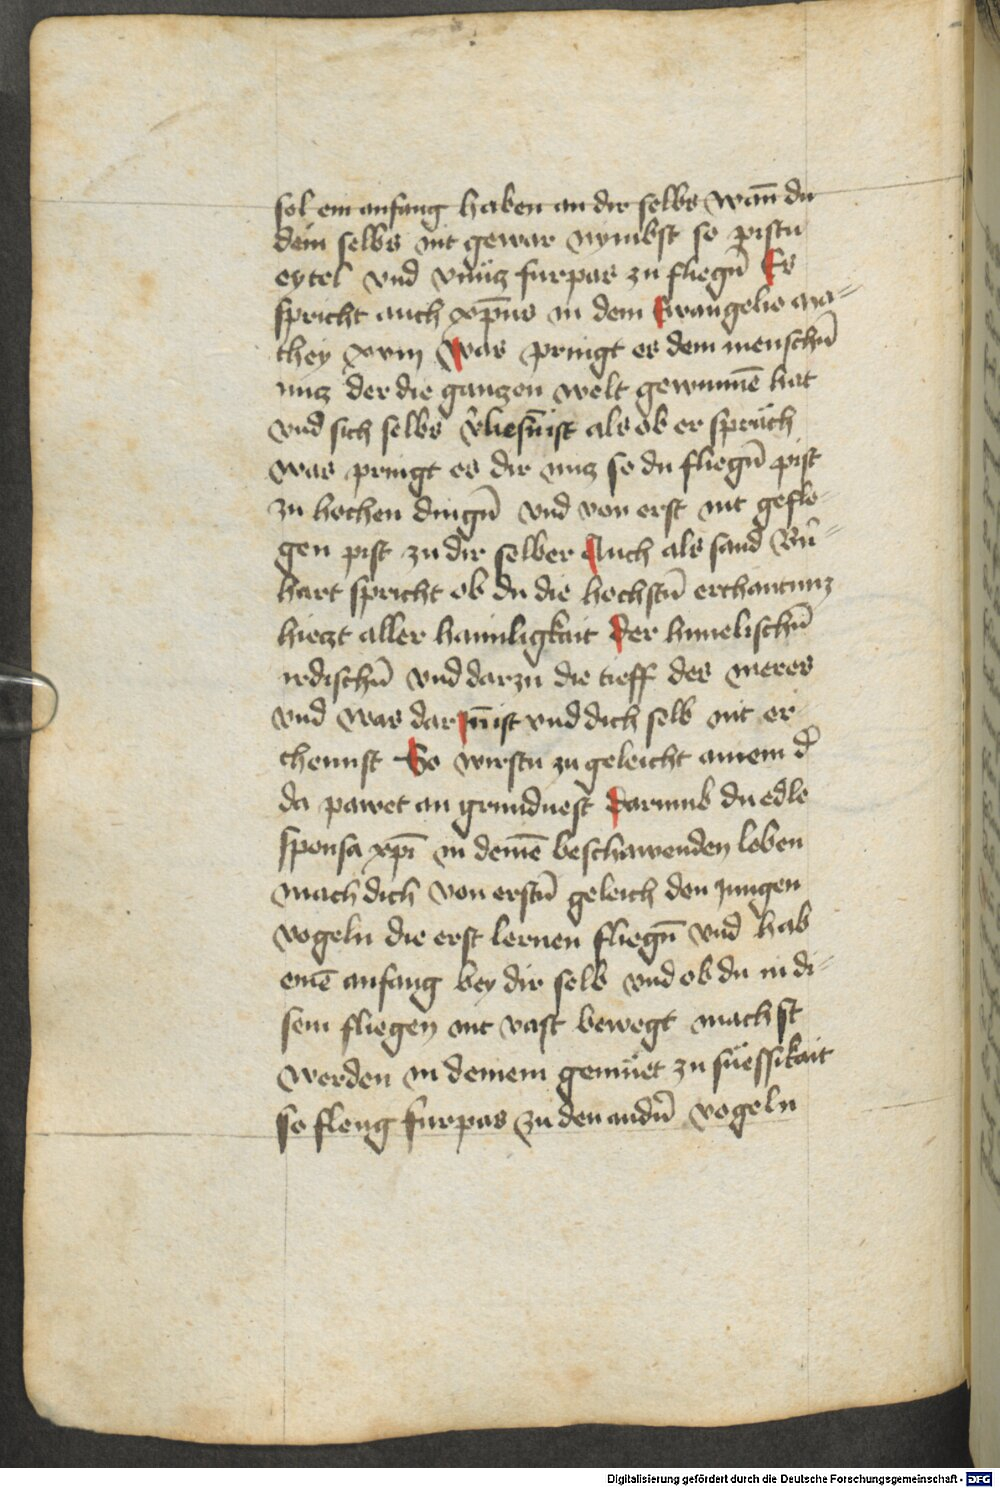 sol ein anfang haben an dir selbs wan̄ du
dein selbs nit gewar nymbst so pistu
eytel vnd vnnücz furpas zu fliegn̄ Es
spricht auch xp̄us in dem Ewangelio ma=
they xviij Was pringt es dem menschn̄
nucz der die ganczen welt gewunnē hat
vnd sich selbs v̄liesn̄ ist als ob er spräch
was pringt es dir nucz so du fliegn̄ pist
zu hochen dingn̄ vnd von erst nit geflo-
gen pist zu dir selber Auch als sand Bn̄=
hart spricht ob du die hochstn̄ erchantnuz
hiezt aller haimligkait der himelischn̄
irdischn̄ vnd darzu die tieff des meres
vnd was darin̄ ist vnd dich selb nit er-
chennst So wirstu zu geleicht ainem d̄
da pawet an gruntuest darumb du edle
sponsa xpī in deinē beschawenden leben
mach dich von erstn̄ geleich den jungen
vogeln die erst lernen fliegn̄ vnd hab
einē anfang bey dir selb vnd ob du in di-
sem fliegen nit vast bewegt machst
werden in deinem gemüet zu süessikait
so fleug furpas zu den andn̄ vogeln
Digitalisierung gefördert durch die Deutsche Forschungsgemeinschaft - DFG